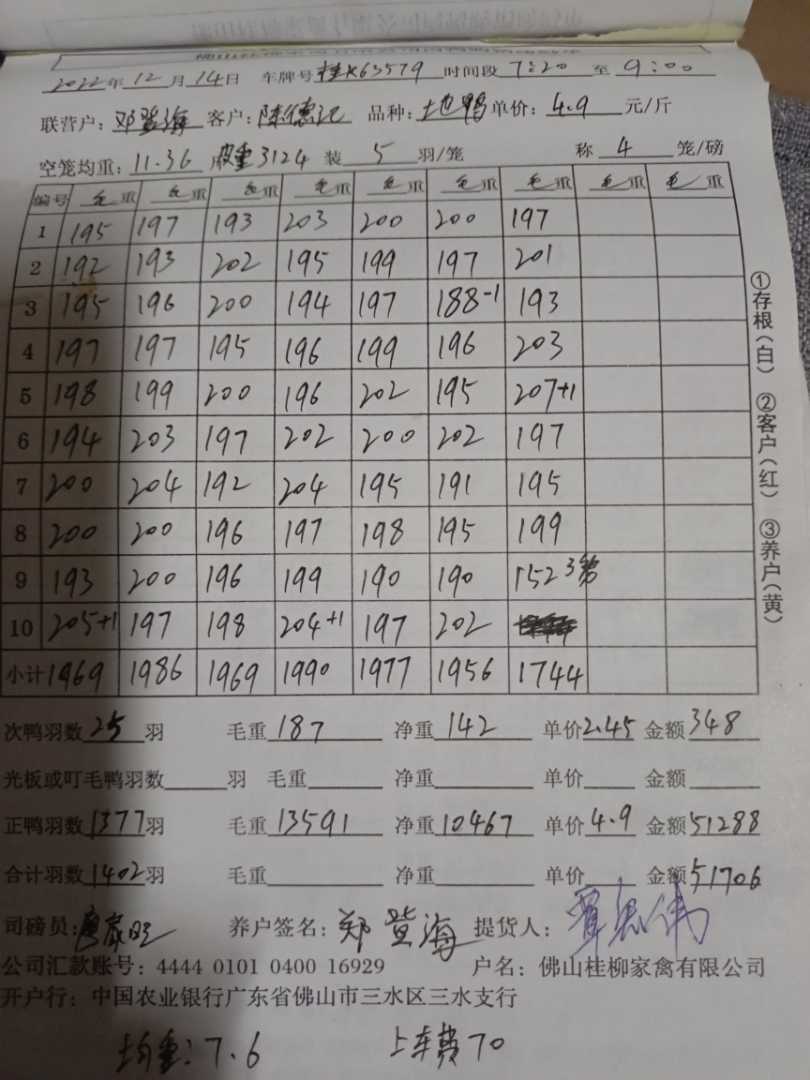 2022年12月14日 车牌号桂K63579 时间段7:20至9:00
联营户: 邓蓥海 客户: 陈德记 品种: 土也鸭 单价: 4.9 元/斤
空笼均重: 11.36 皮重3124 装 5 羽/笼 称 4 笼/磅
编号 毛重 毛重 毛重 毛重 毛重 毛重 毛重 毛重 毛重
1 195 197 193 203 200 200 197
2 192 193 202 195 199 197 201
3 195 196 200 194 197 188-1 193
4 197 197 195 196 199 196 203
5 198 199 200 196 202 195 207+1
6 194 203 197 202 200 202 197
7 200 204 192 204 195 191 195
8 200 200 196 197 198 195 199
9 193 200 196 199 190 190 152 3笼
10 205+1 197 198 204+1 197 202
小计 1969 1986 1969 1990 1977 1956 1744
次鸭羽数25羽 毛重187 净重142 单价2.45 金额348
光板或叮毛鸭羽数 羽 毛重 净重 单价 金额
正鸭羽数1377羽 毛重13591 净重10467 单价4.9 金额51288
合计羽数1402羽 毛重 净重 单价 金额51706
司磅员: 养户签名: 郑蓥海 提货人:
公司汇款账号: 4444 0101 0400 16929 户名: 佛山桂柳家禽有限公司
开户行: 中国农业银行广东省佛山市三水区三水支行
均重: 7.6 上车费70
①存根(白) ②客户(红) ③养户(黄)